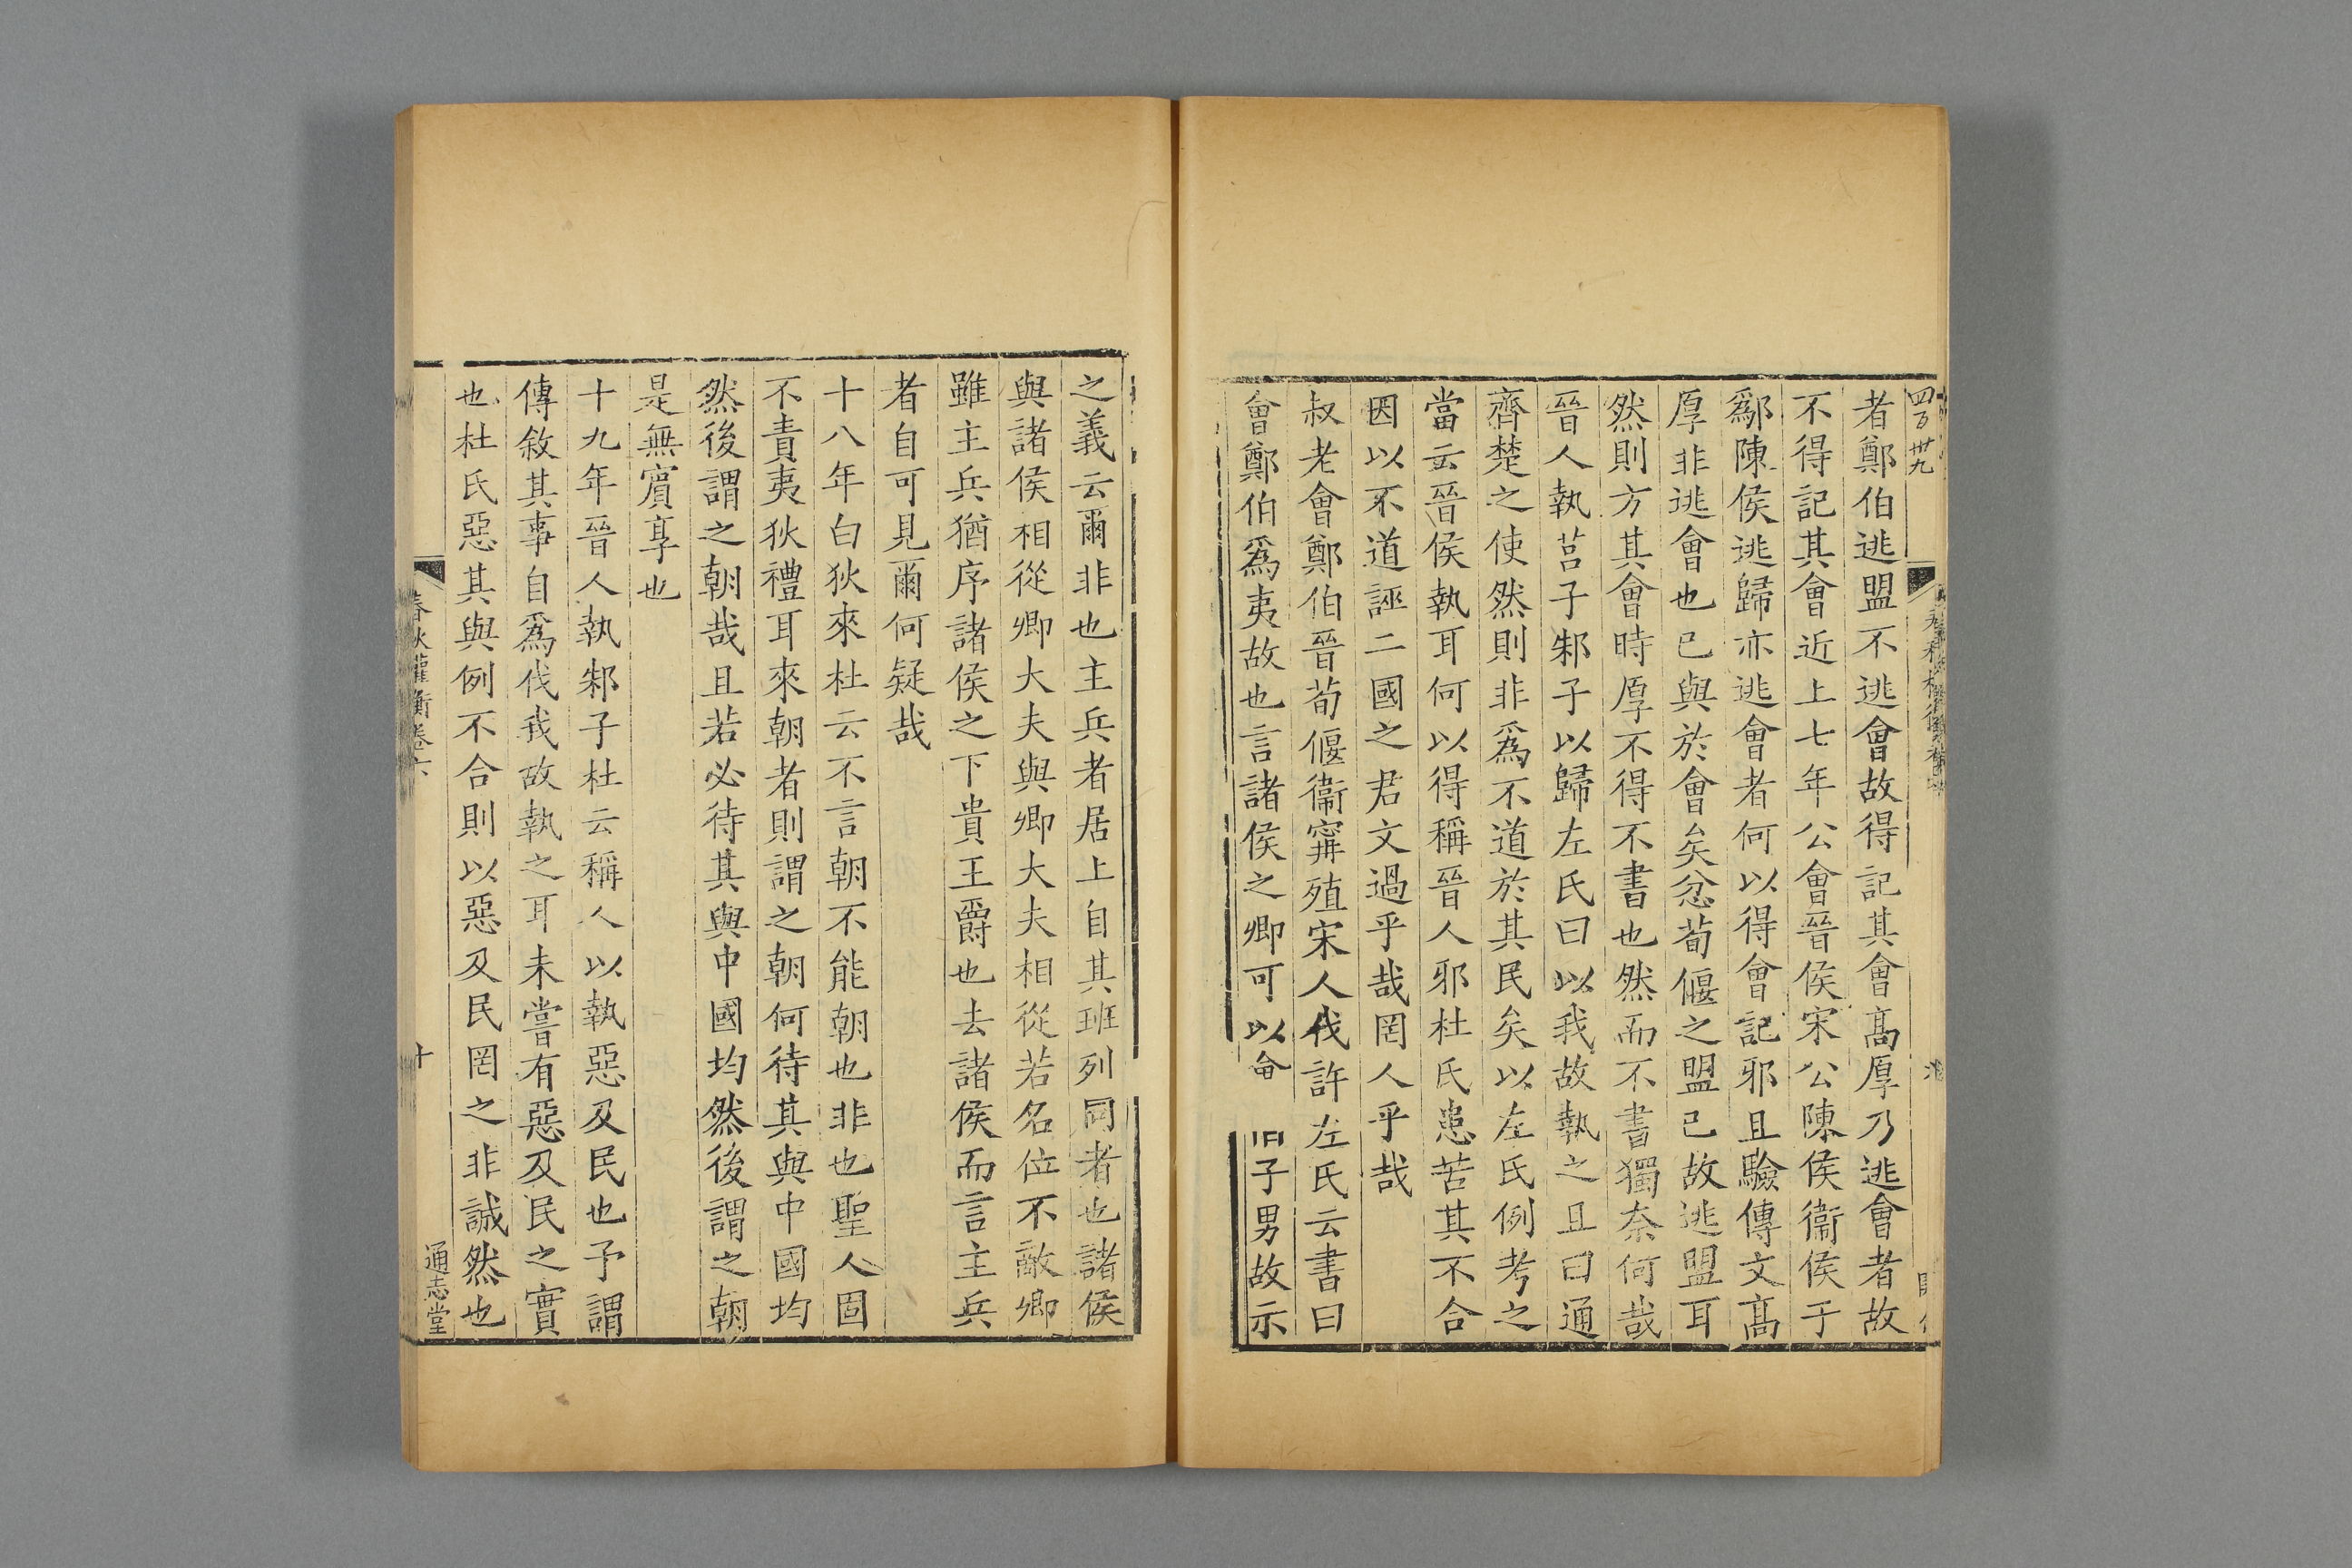 四百卅九
者鄭伯逃盟不逃會故得記其會高厚乃逃會者故
不得記其會近上七年公會晉侯宋公陳侯衞侯于
鄬陳侯逃歸亦逃會者何以得會記邪且驗傳文高
厚非逃會也已與於會矣忿荀偃之盟已故逃盟耳
然則方其會時厚不得不書也然而不書獨奈何哉
晉人執莒子邾子以歸左氏曰以我故執之且曰通
齊楚之使然則非爲不道於其民矣以左氏例考之
當云晉侯執耳何以得稱晉人邪杜氏患苦其不合
因以不道誣二國之君文過乎哉罔人乎哉
叔老會鄭伯晉荀偃衞寗殖宋人伐許左氏云書曰
會鄭伯爲夷故也言諸侯之卿可以會子男故示
之義云爾非也主兵者居上自其班列同者也諸侯
與諸侯相從卿大夫與卿大夫相從若名位不敵卿
雖主兵猶序諸侯之下貴王爵也去諸侯而言主兵
者自可見爾何疑哉
十八年白狄來杜云不言朝不能朝也非也聖人固
不責夷狄禮耳來朝者則謂之朝何待其與中國均
然後謂之朝哉且若必待其與中國均然後謂之朝
是無賓享也
十九年晉人執邾子杜云稱人以執惡及民也予謂
傳敘其事自爲伐我故執之耳未嘗有惡及民之實
也杜氏惡其與例不合則以惡及民罔之非誠然也
春秋權衡卷六
十
通志堂